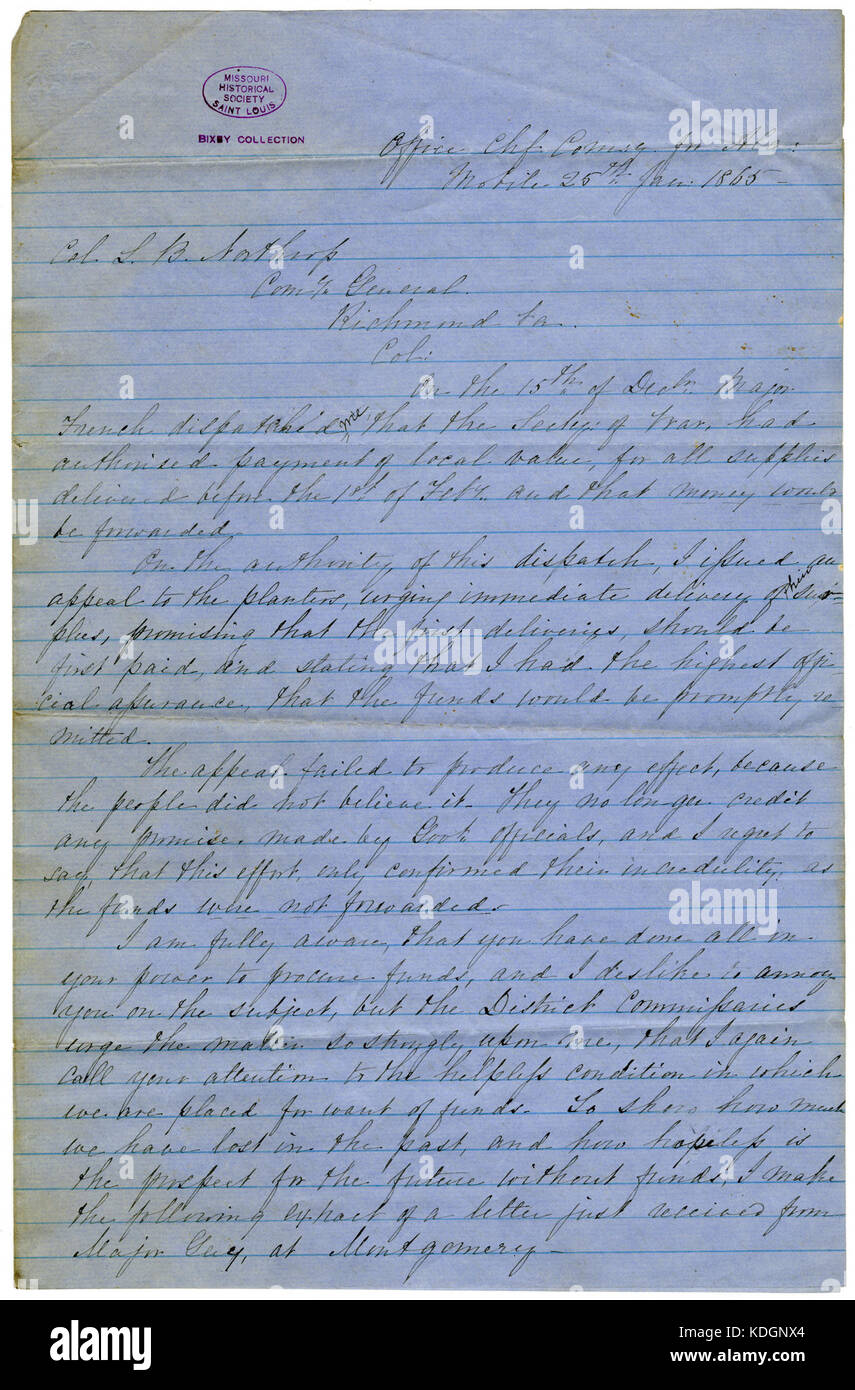 MISSOURI
HISTORICAL
SOCIETY
SAINT LOUIS
BIXBY COLLECTION
Office Chf. Comsy for Ala:
Mobile 25th Jan 1865 –
Col. L. B. Northrop
Comy General
Richmond Va.
Col:
On the 15th of Decbr. Major
French dispatch'd me that the Secty of War, had
authorised payment of local value, for all supplies
delivered before the 1st of Feby. and that money would
be forwarded.
On the authority of this dispatch, I issued an
appeal to the planters, urging immediate delivery of their sur-
plus, promising that the first deliveries, should be
first paid, and stating that I had the highest offi-
cial assurance, that the funds would be promptly re
mitted.
The appeal failed to produce any effect, because
the people did not believe it. They no longer credit
any promise made by Govt. officials, and I regret to
say, that this effort, only confirmed their incredulity, as
the funds were not forwarded.
I am fully aware, that you have done all in
your power to procure funds, and I dislike to annoy
you on the subject, but the District Commissaries
urge the matter so strongly upon me, that I again
call your attention to the helpless condition in which
we are placed for want of funds. To show how much
we have lost in the past, and how hopeless is
the prospect for the future without funds, I make
the following extract of a letter just received from
Major Guy, at Montgomery –
alamy
Image ID: KDGNX4
www.alamy.com